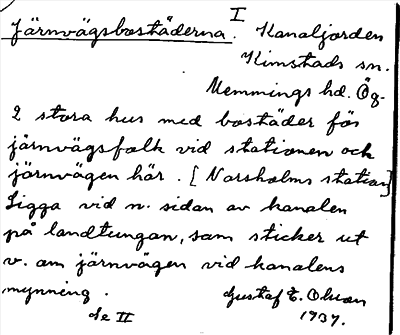 I
Järnvägsbostäderna. Kanaljorden
Kimstads sn.
Memmings hd. Ög.
2 stora hus med bostäder för
järnvägsfolk vid stationen och
järnvägen här. [Norsholms station]
Ligga vid n. sidan av kanalen
på landtungan, som sticker ut
v. om järnvägen vid kanalens
mynning. Gustaf E. Olson
Se II 1937.